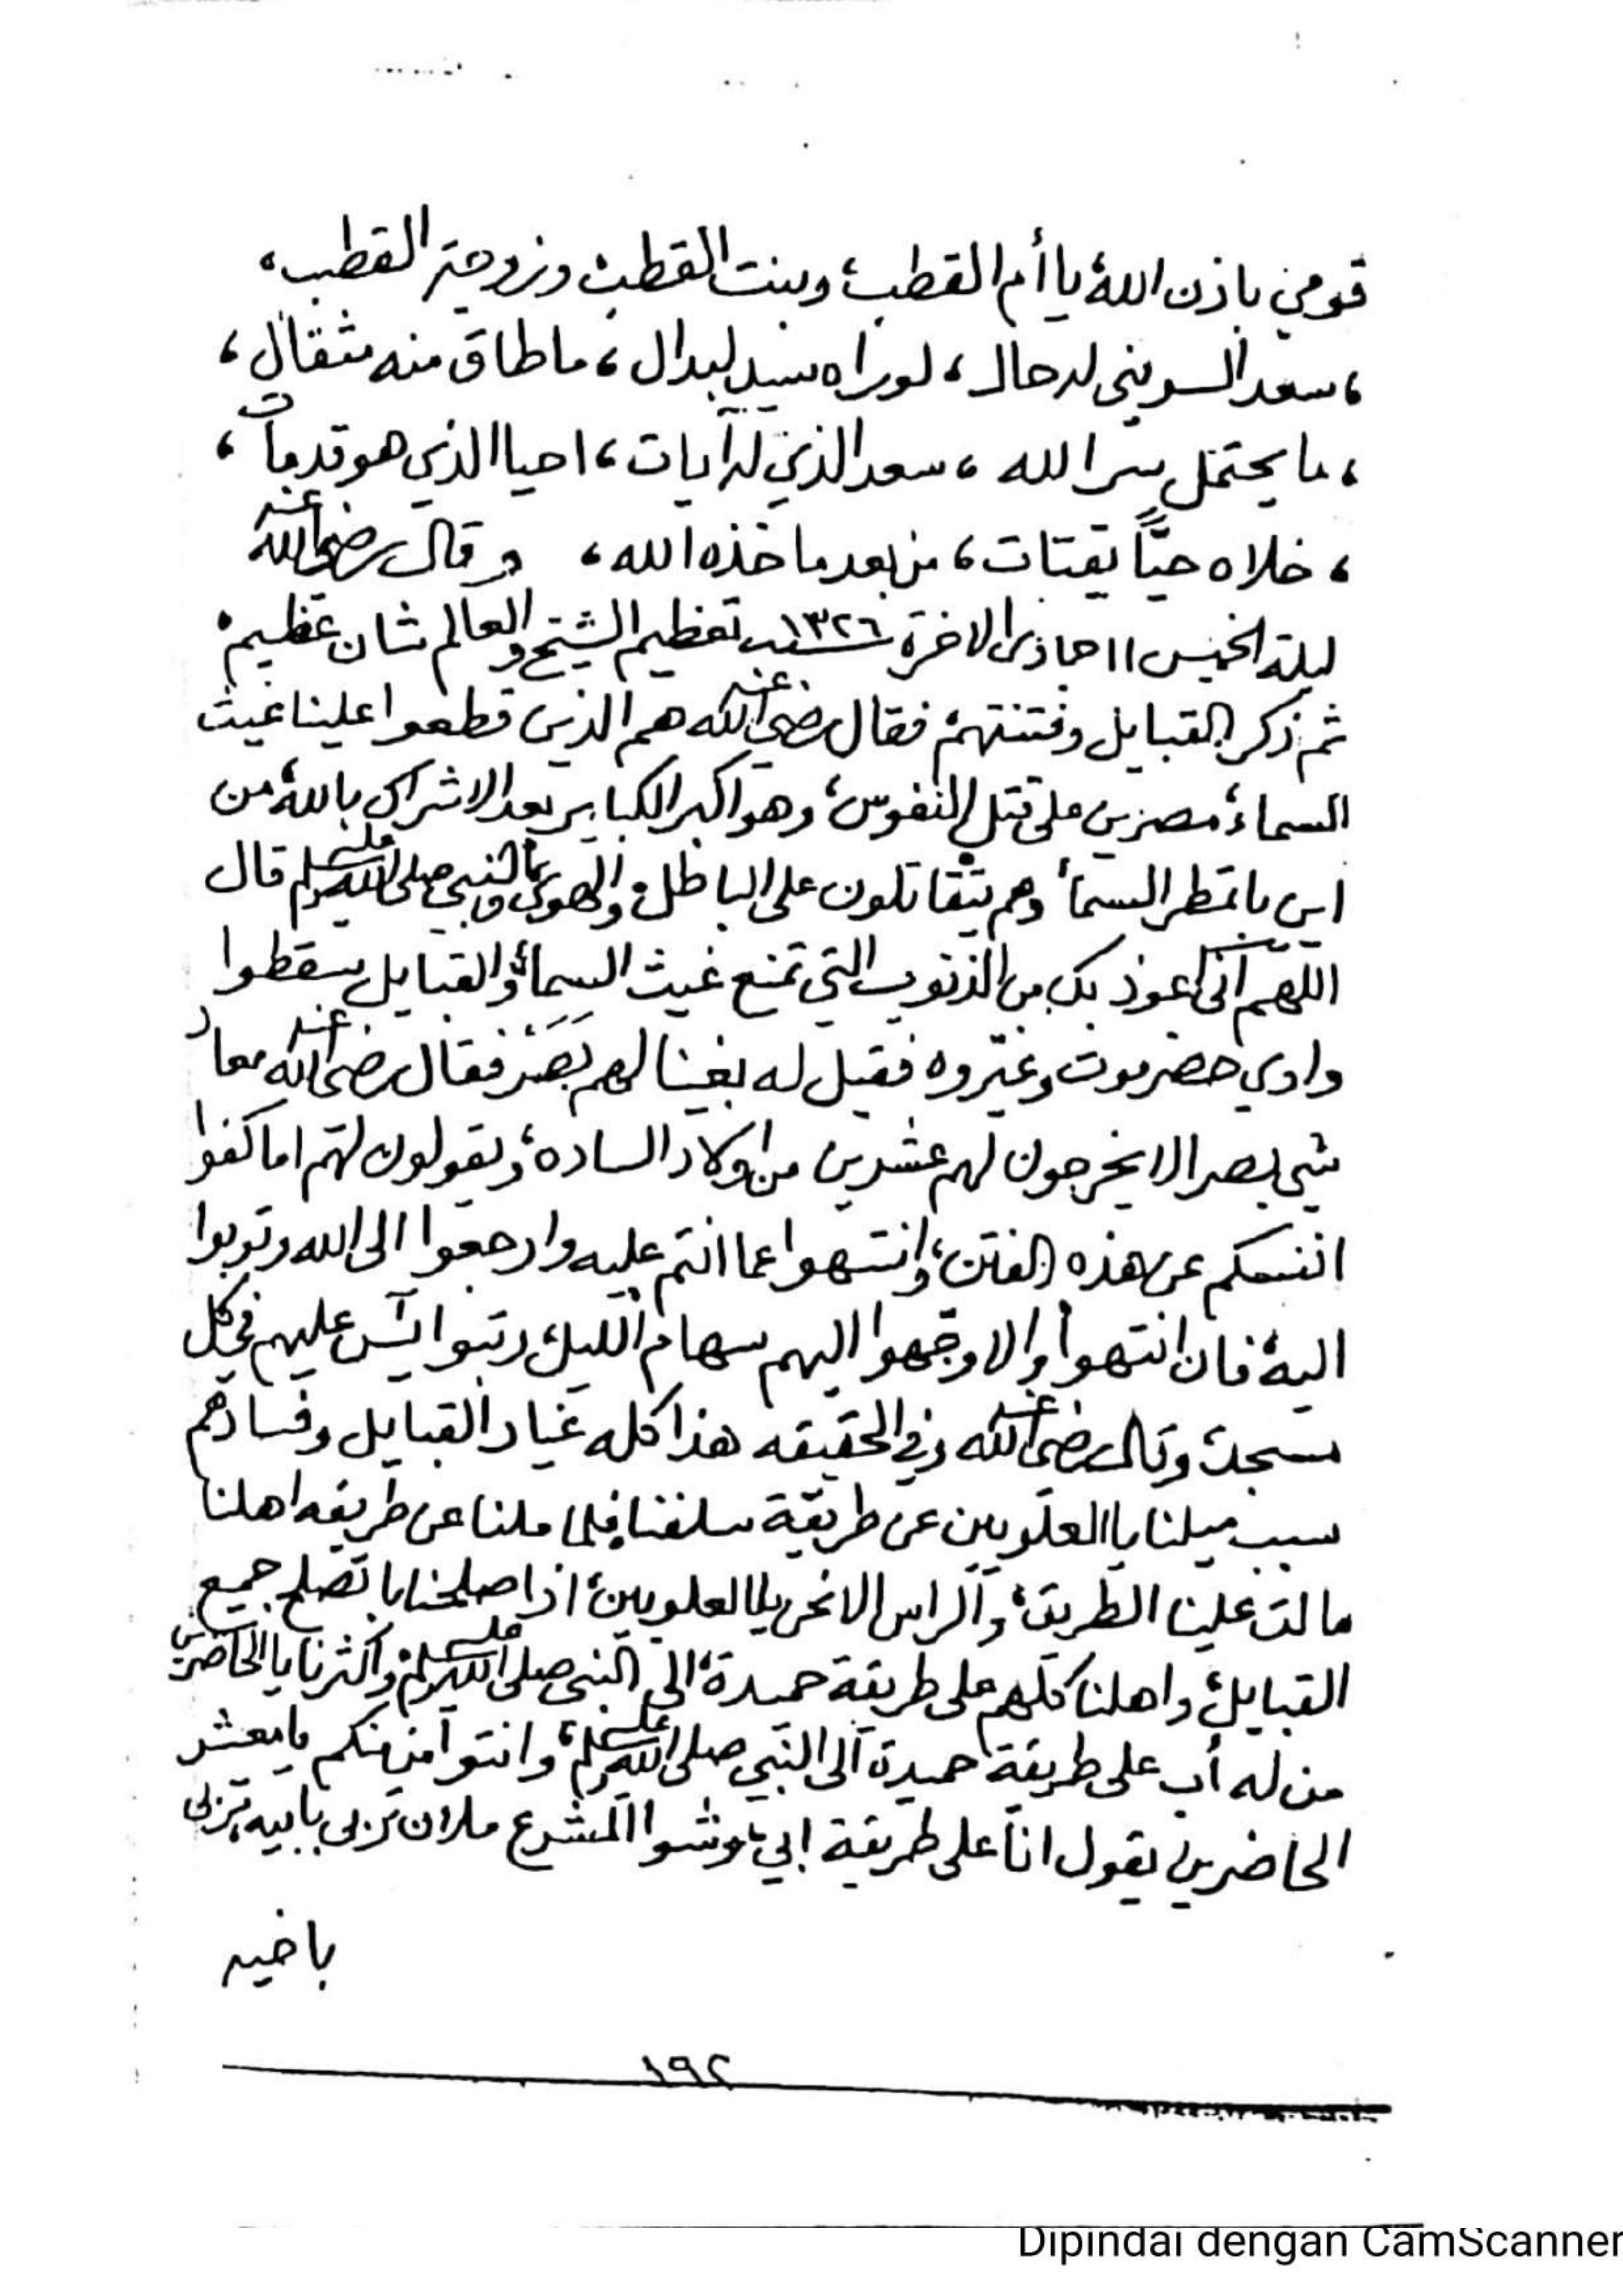 قومي باذن الله يا أم القطب، وبنت القطب، وزوجة القطب،
، سعد السويني له حال ، لو يراه سيد لبدال ، ما طاق منه مثقال ،
، ما يحتمل سر الله ، سعد الذي له آيات ، احيا الذي هو قد مات ،
، خلاه حيًّا يقتات ، من بعد ما خذه الله ، وقال رضي الله عنه
ليلة الخميس ١١ جماذى الاخرة ١٣٢٦ سنة تعظيم الشيخ والعالم شان عظيم
ثم ذكر القبايل وفتنتهم فقال رضي الله عنه هم الذين قطعوا علينا غيث
السماء، مصرين على قتل النفوس، وهو اكبر الكباير بعد الاشراك بالله، من
اين با تمطر السماء وهم يتقاتلون على الباطل والهوى والنبي صلى الله عليه وسلم قال
اللهم اني اعوذ بك من الذنوب التي تمنع غيث السماء والقبايل سقطوا
وادي حضرموت وغيّروه فقيل له بغينا لهم بصر فقال رضي الله عنه معاد
شي بصر الا يخرجون لهم عشرين من اولاد الساده، ويقولون لهم اما كفوا
انفسكم عن هذه الفتن، وانتهوا عما انتم عليه وارجعوا الى الله وتوبوا
اليه، فان انتهوا والا وجهوا اليهم سهام الليل، رتبوا يس عليهم في كل
مسجد، وقال رضي الله عنه وفي الحقيقه هذا كله غيار القبايل وفسادهم
سبب ميلنا يا العلويين عن طريقة سلفنا، فلما ملنا عن طريقه اهلنا
مالت علينا الطريق، والراس الا نحن يا العلويين، اذا صلحنا با تصلح جميع
القبايل، واهلنا كلهم على طريقة حميدة، الى النبي صلى الله عليه وسلم، واكثرنا يا الحاضرين
من له أب على طريقة حميدة الى النبي صلى الله عليه وسلم، وانتوا من منكم يا معشر
الحاضرين يقول انا على طريقة ابي، وشوا المشرع ملان تربى بابيه، تربى
باخيه
١٩٢
Dipindai dengan CamScanner